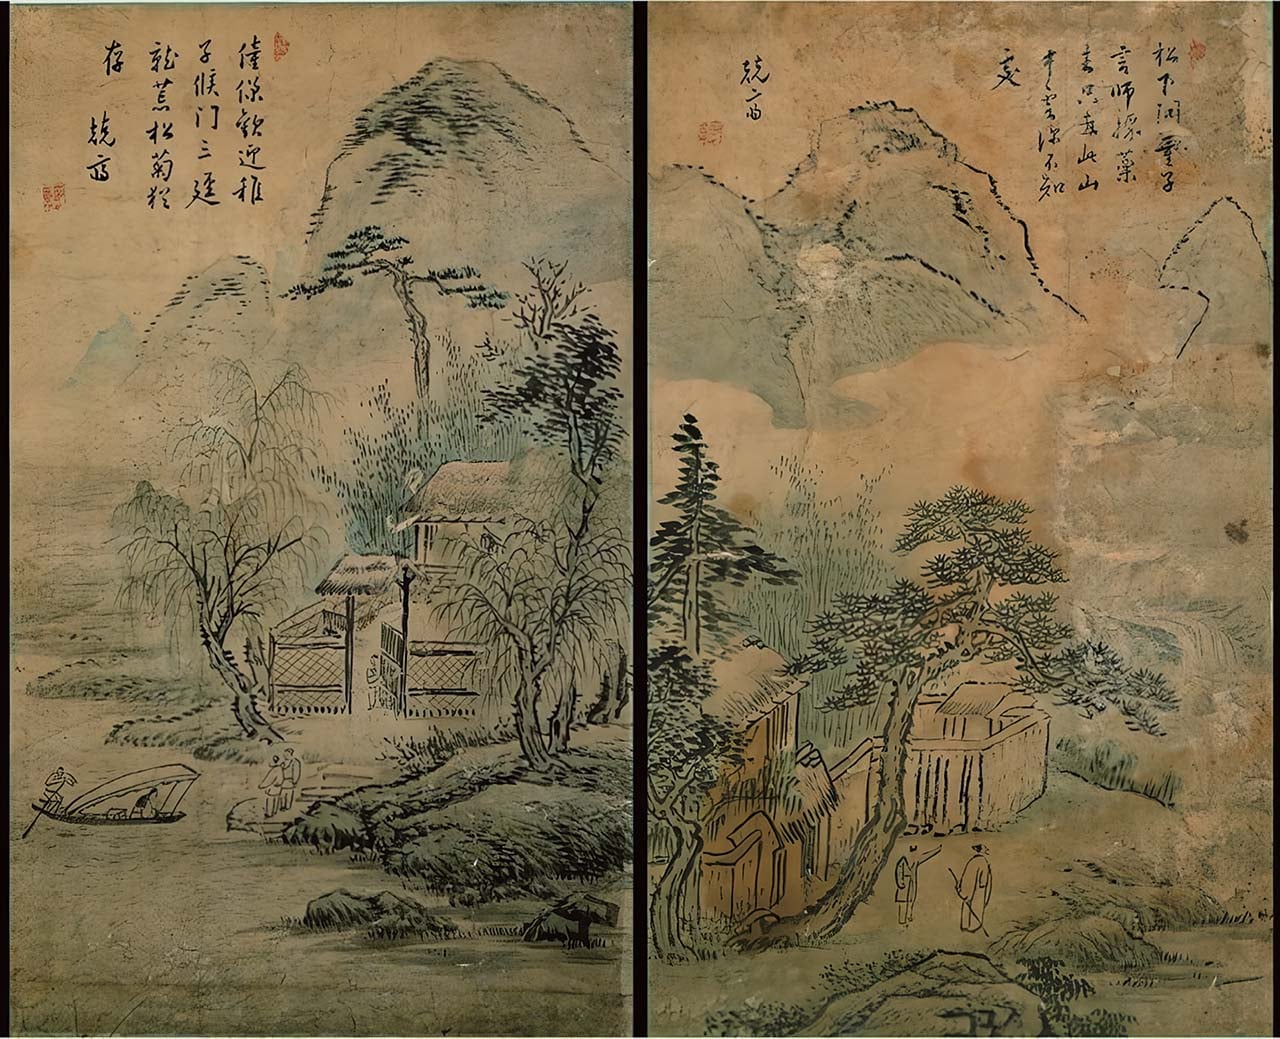 松下問童子
言師採藥
去只在此山
中雲深不知
處
僮僕歡迎稚
子候门三逕
就荒松菊猶
存